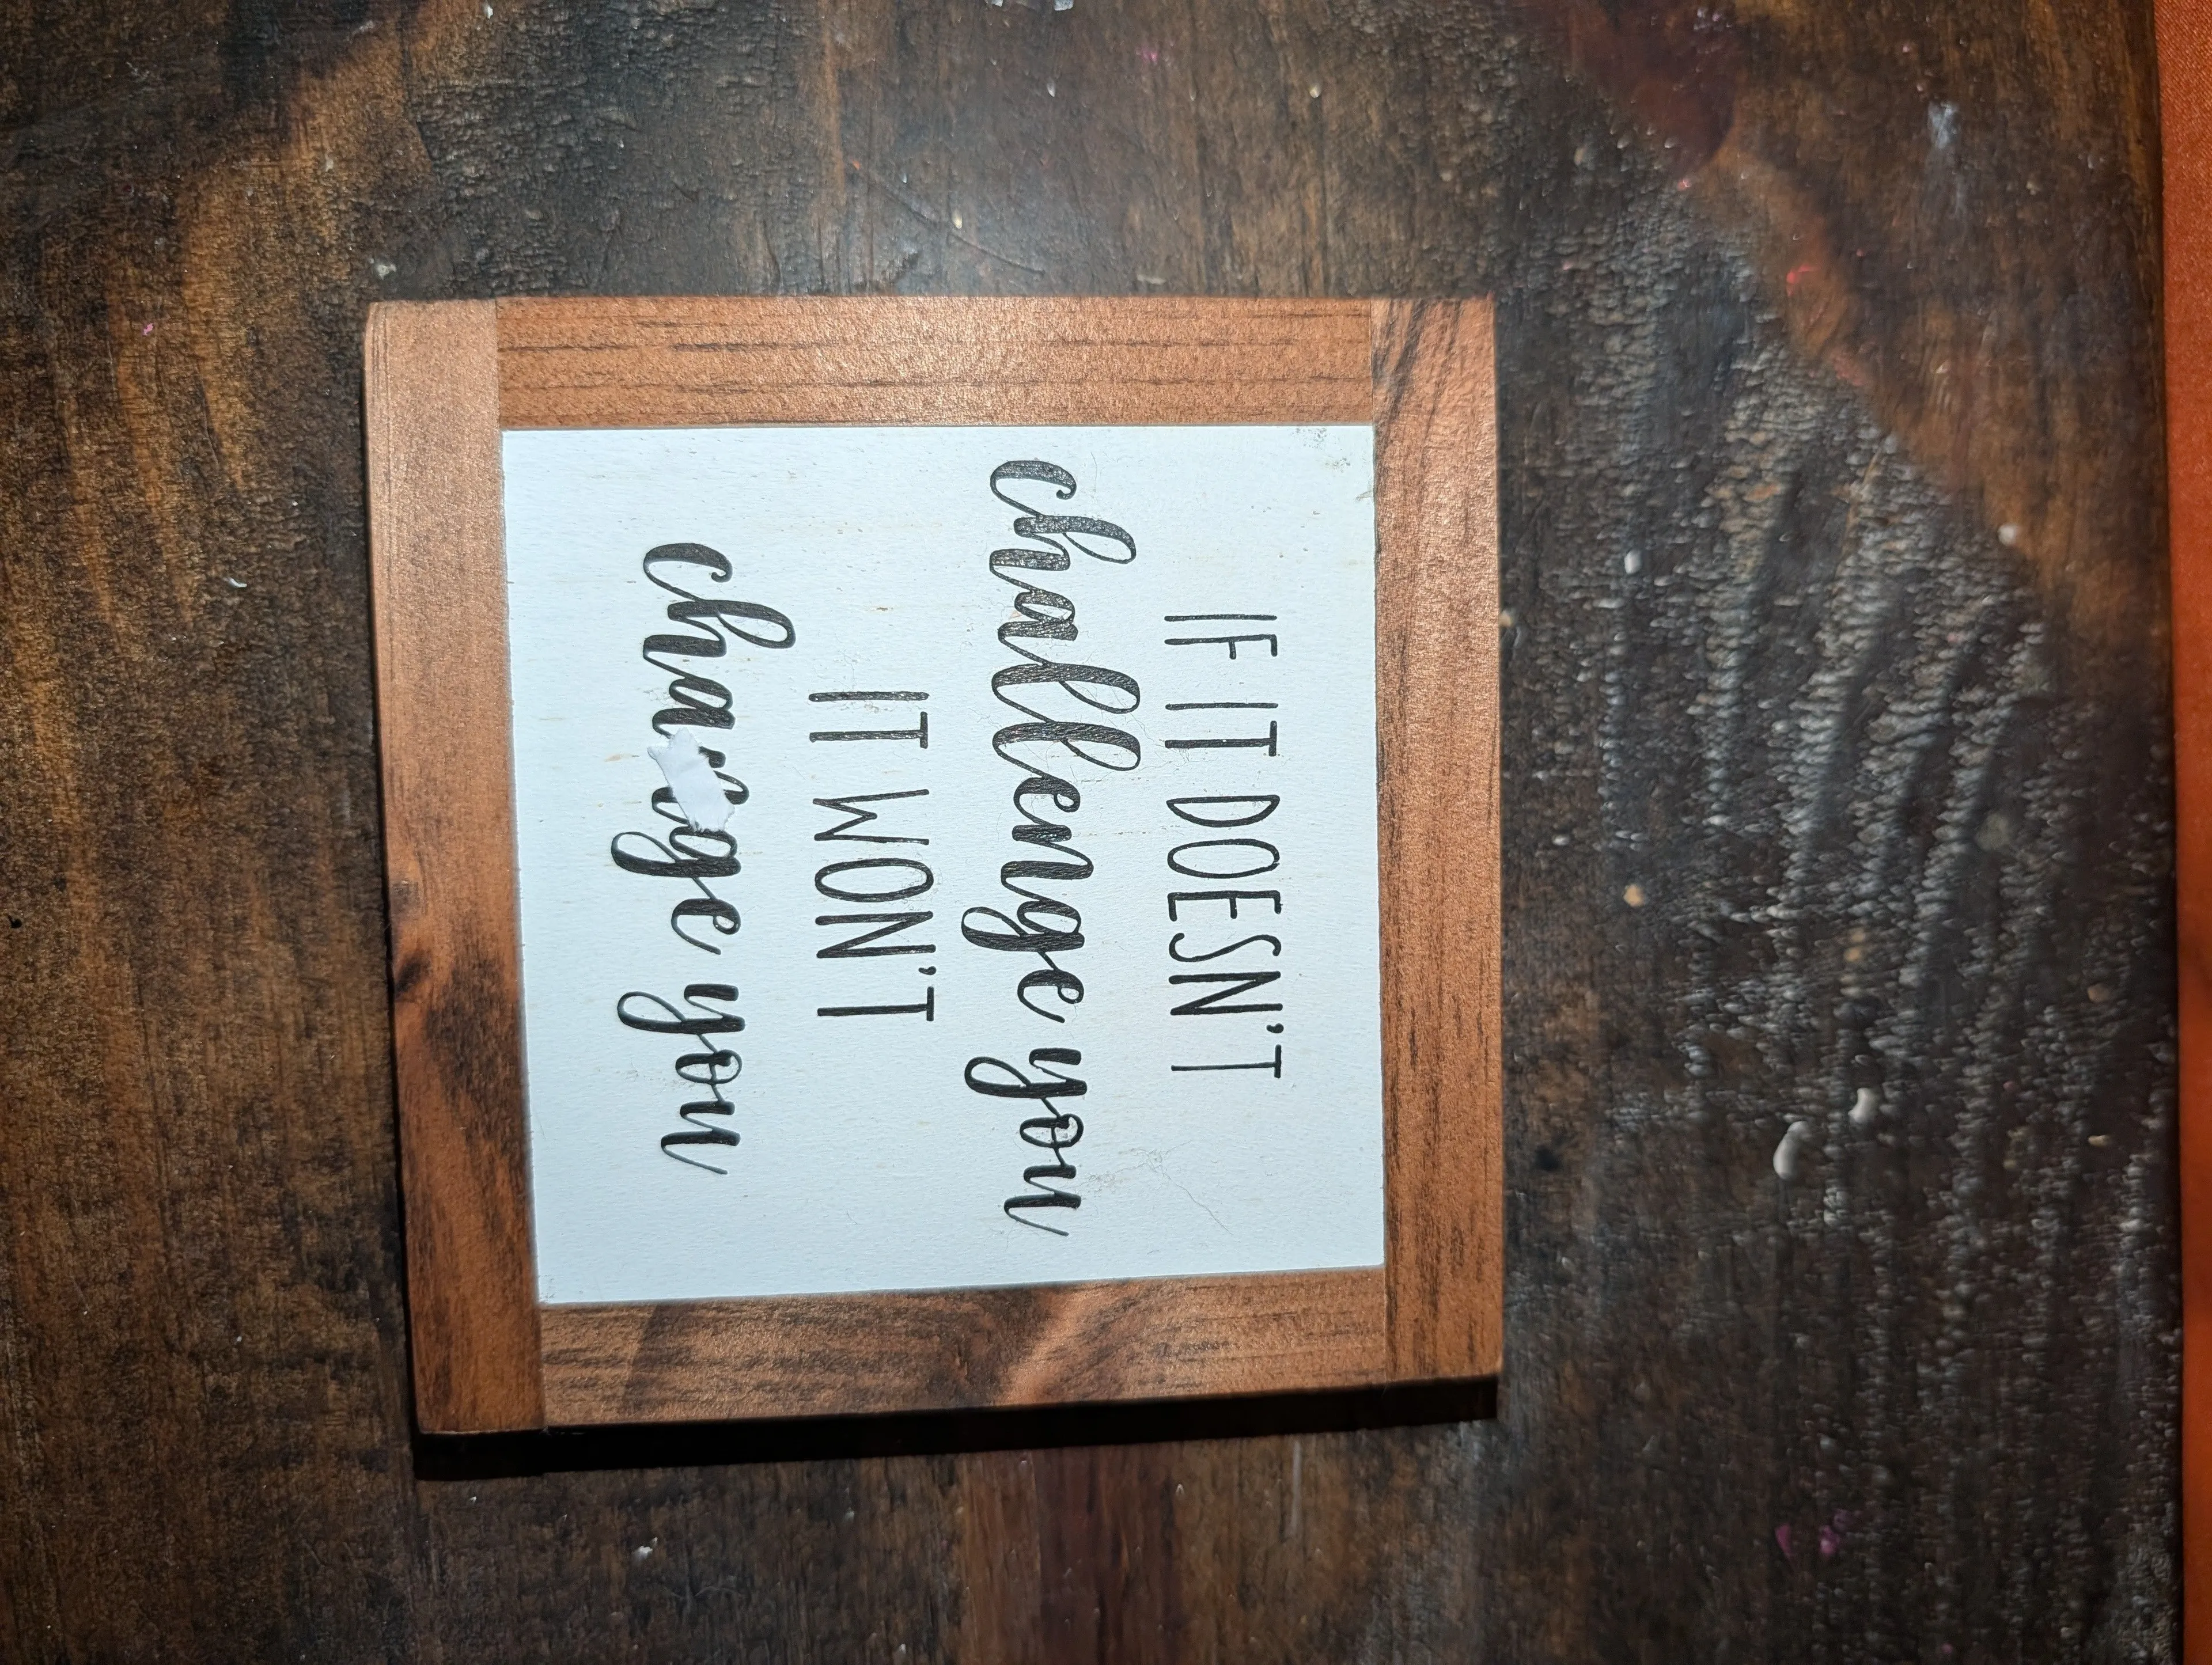 IF IT DOESN'T
challenge you
IT WON'T
you